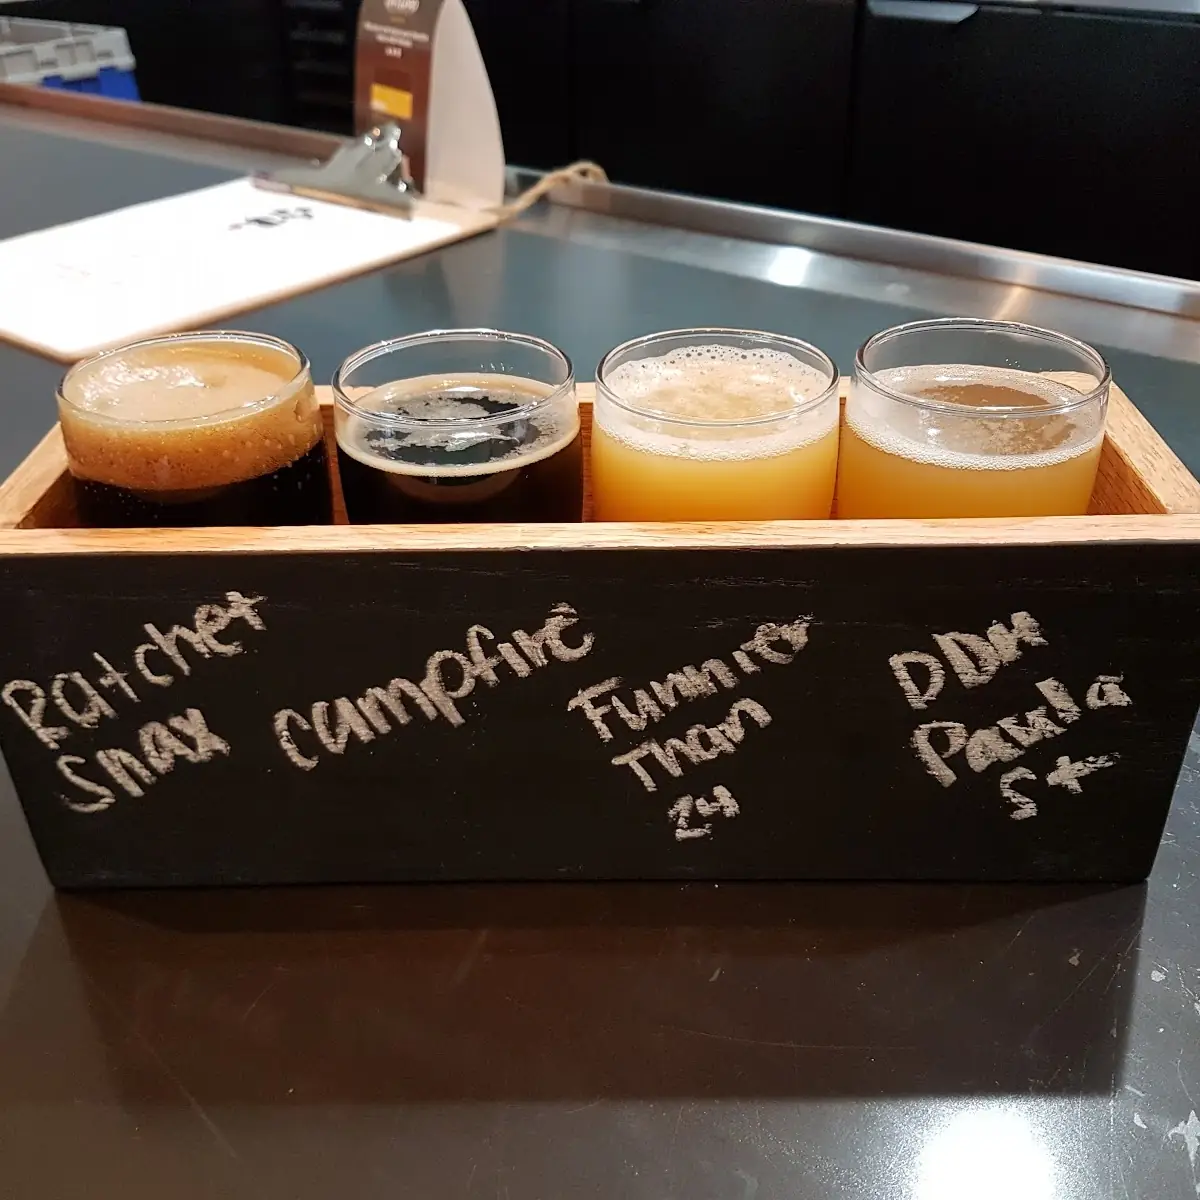 Ratchet
Snax
campfire
Funnier
Than
24
DDH
Paula
St